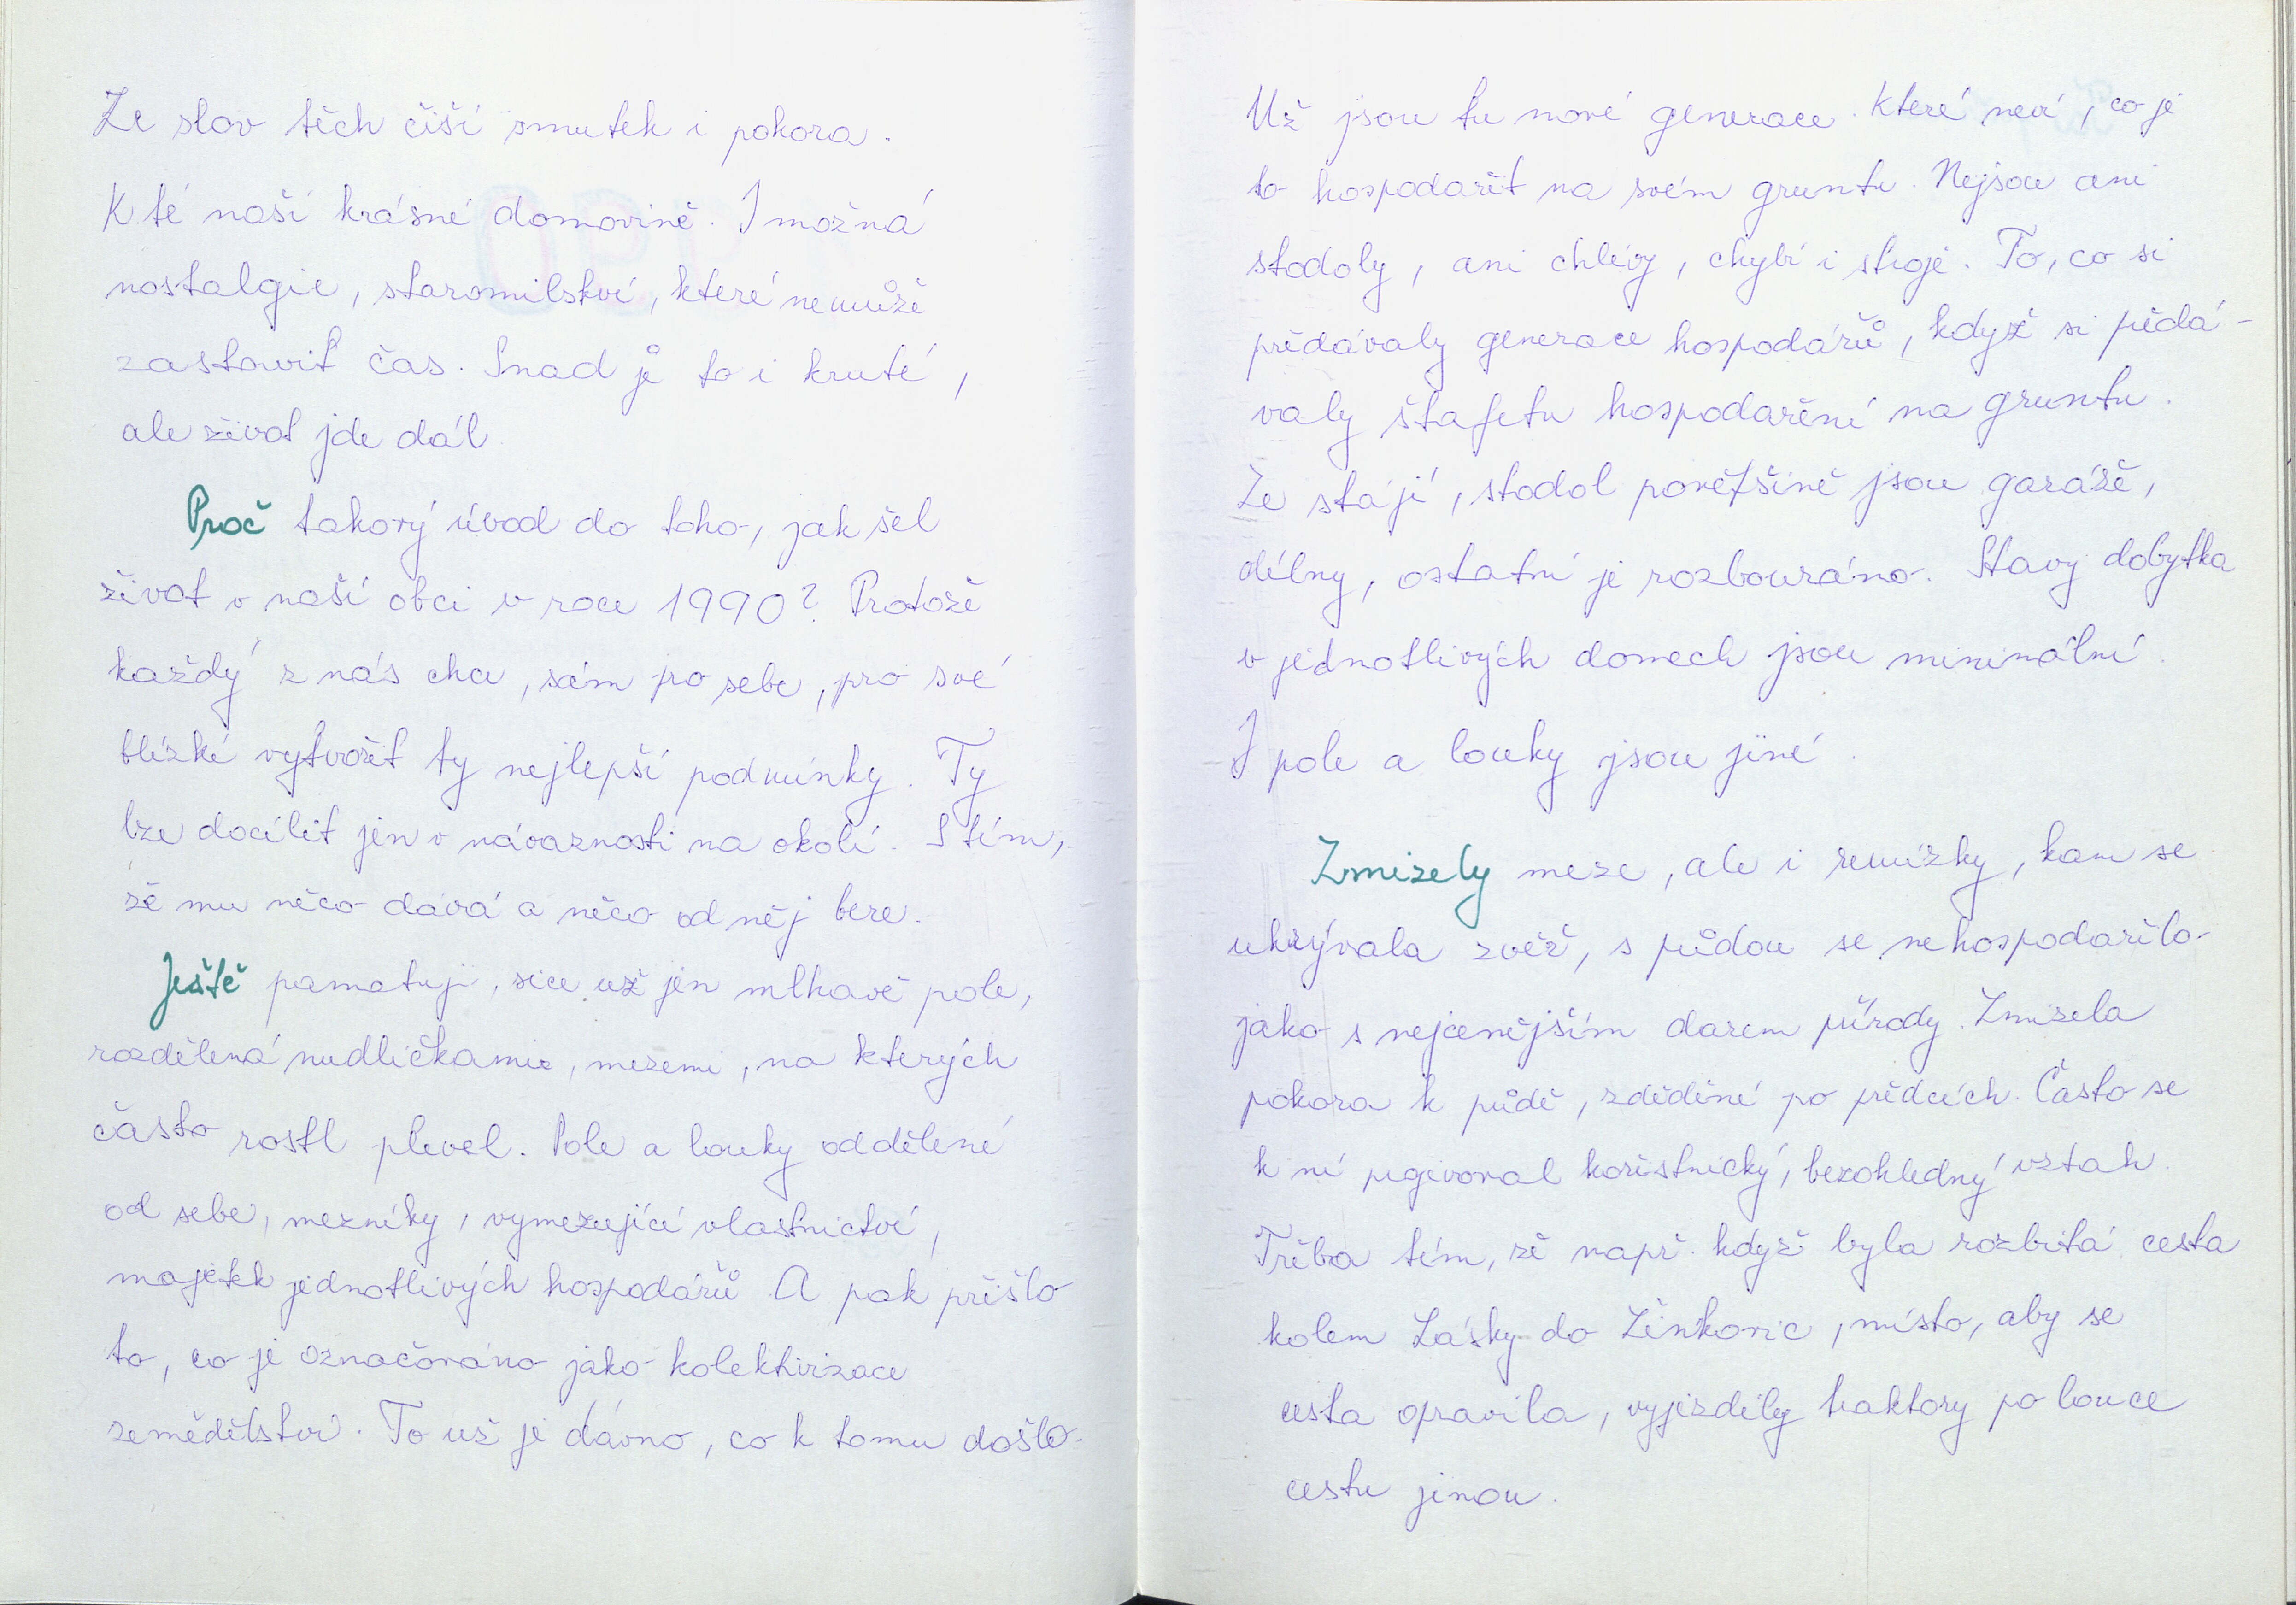 Ze slov těch čiší smutek i pokora.
K té naší krásné domovině. I možná
nostalgie, staromilství, které nemůže
zastavit čas. Snad je to i kruté,
ale život jde dál
Proč takový úvod do toho, jak šel
život v naší obci v roce 1990? Protože
každý z nás chce, sám pro sebe, pro své
blízké vytvořit ty nejlepší podmínky. Ty
lze docílit jen v návaznosti na okolí. S tím,
že mu něco dává a něco od něj bere.
Ještě pamatuji, sice už jen mlhavě pole,
rozdělená nudličkami, mezemi, na kterých
často rostl plevel. Pole a louky oddělené
od sebe, mezníky, vymezující vlastnictví,
majetek jednotlivých hospodářů. A pak přišlo
to, co je označováno jako kolektivizace
zemědělství. To už je dávno, co k tomu došlo.
Už jsou tu nové generace. Které neví, co je
to hospodařit na svém gruntu. Nejsou ani
stodoly, ani chlévy, chybí i stroje. To, co si
předávaly generace hospodářů, když si předá-
valy štafetu hospodaření na gruntu.
Ze stájí, stodol povětšině jsou garáže,
dílny, ostatní je rozbouráno. Stavy dobytka
v jednotlivých domech jsou minimální.
I pole a louky jsou jiné.
Zmizely meze, ale i remízky, kam se
ukrývala zvěř, s půdou se nehospodařilo
jako s nejcenějším darem přírody. Zmizela
pokora k půdě, zděděné po předcích. Často se
k ní projevoval kořistnický, bezohledný vztah.
Třeba tím, že např. když byla rozbitá cesta
kolem Lásky do Žinkovic, místo, aby se
cesta opravila, vyjezdily traktory po louce
cestu jinou.